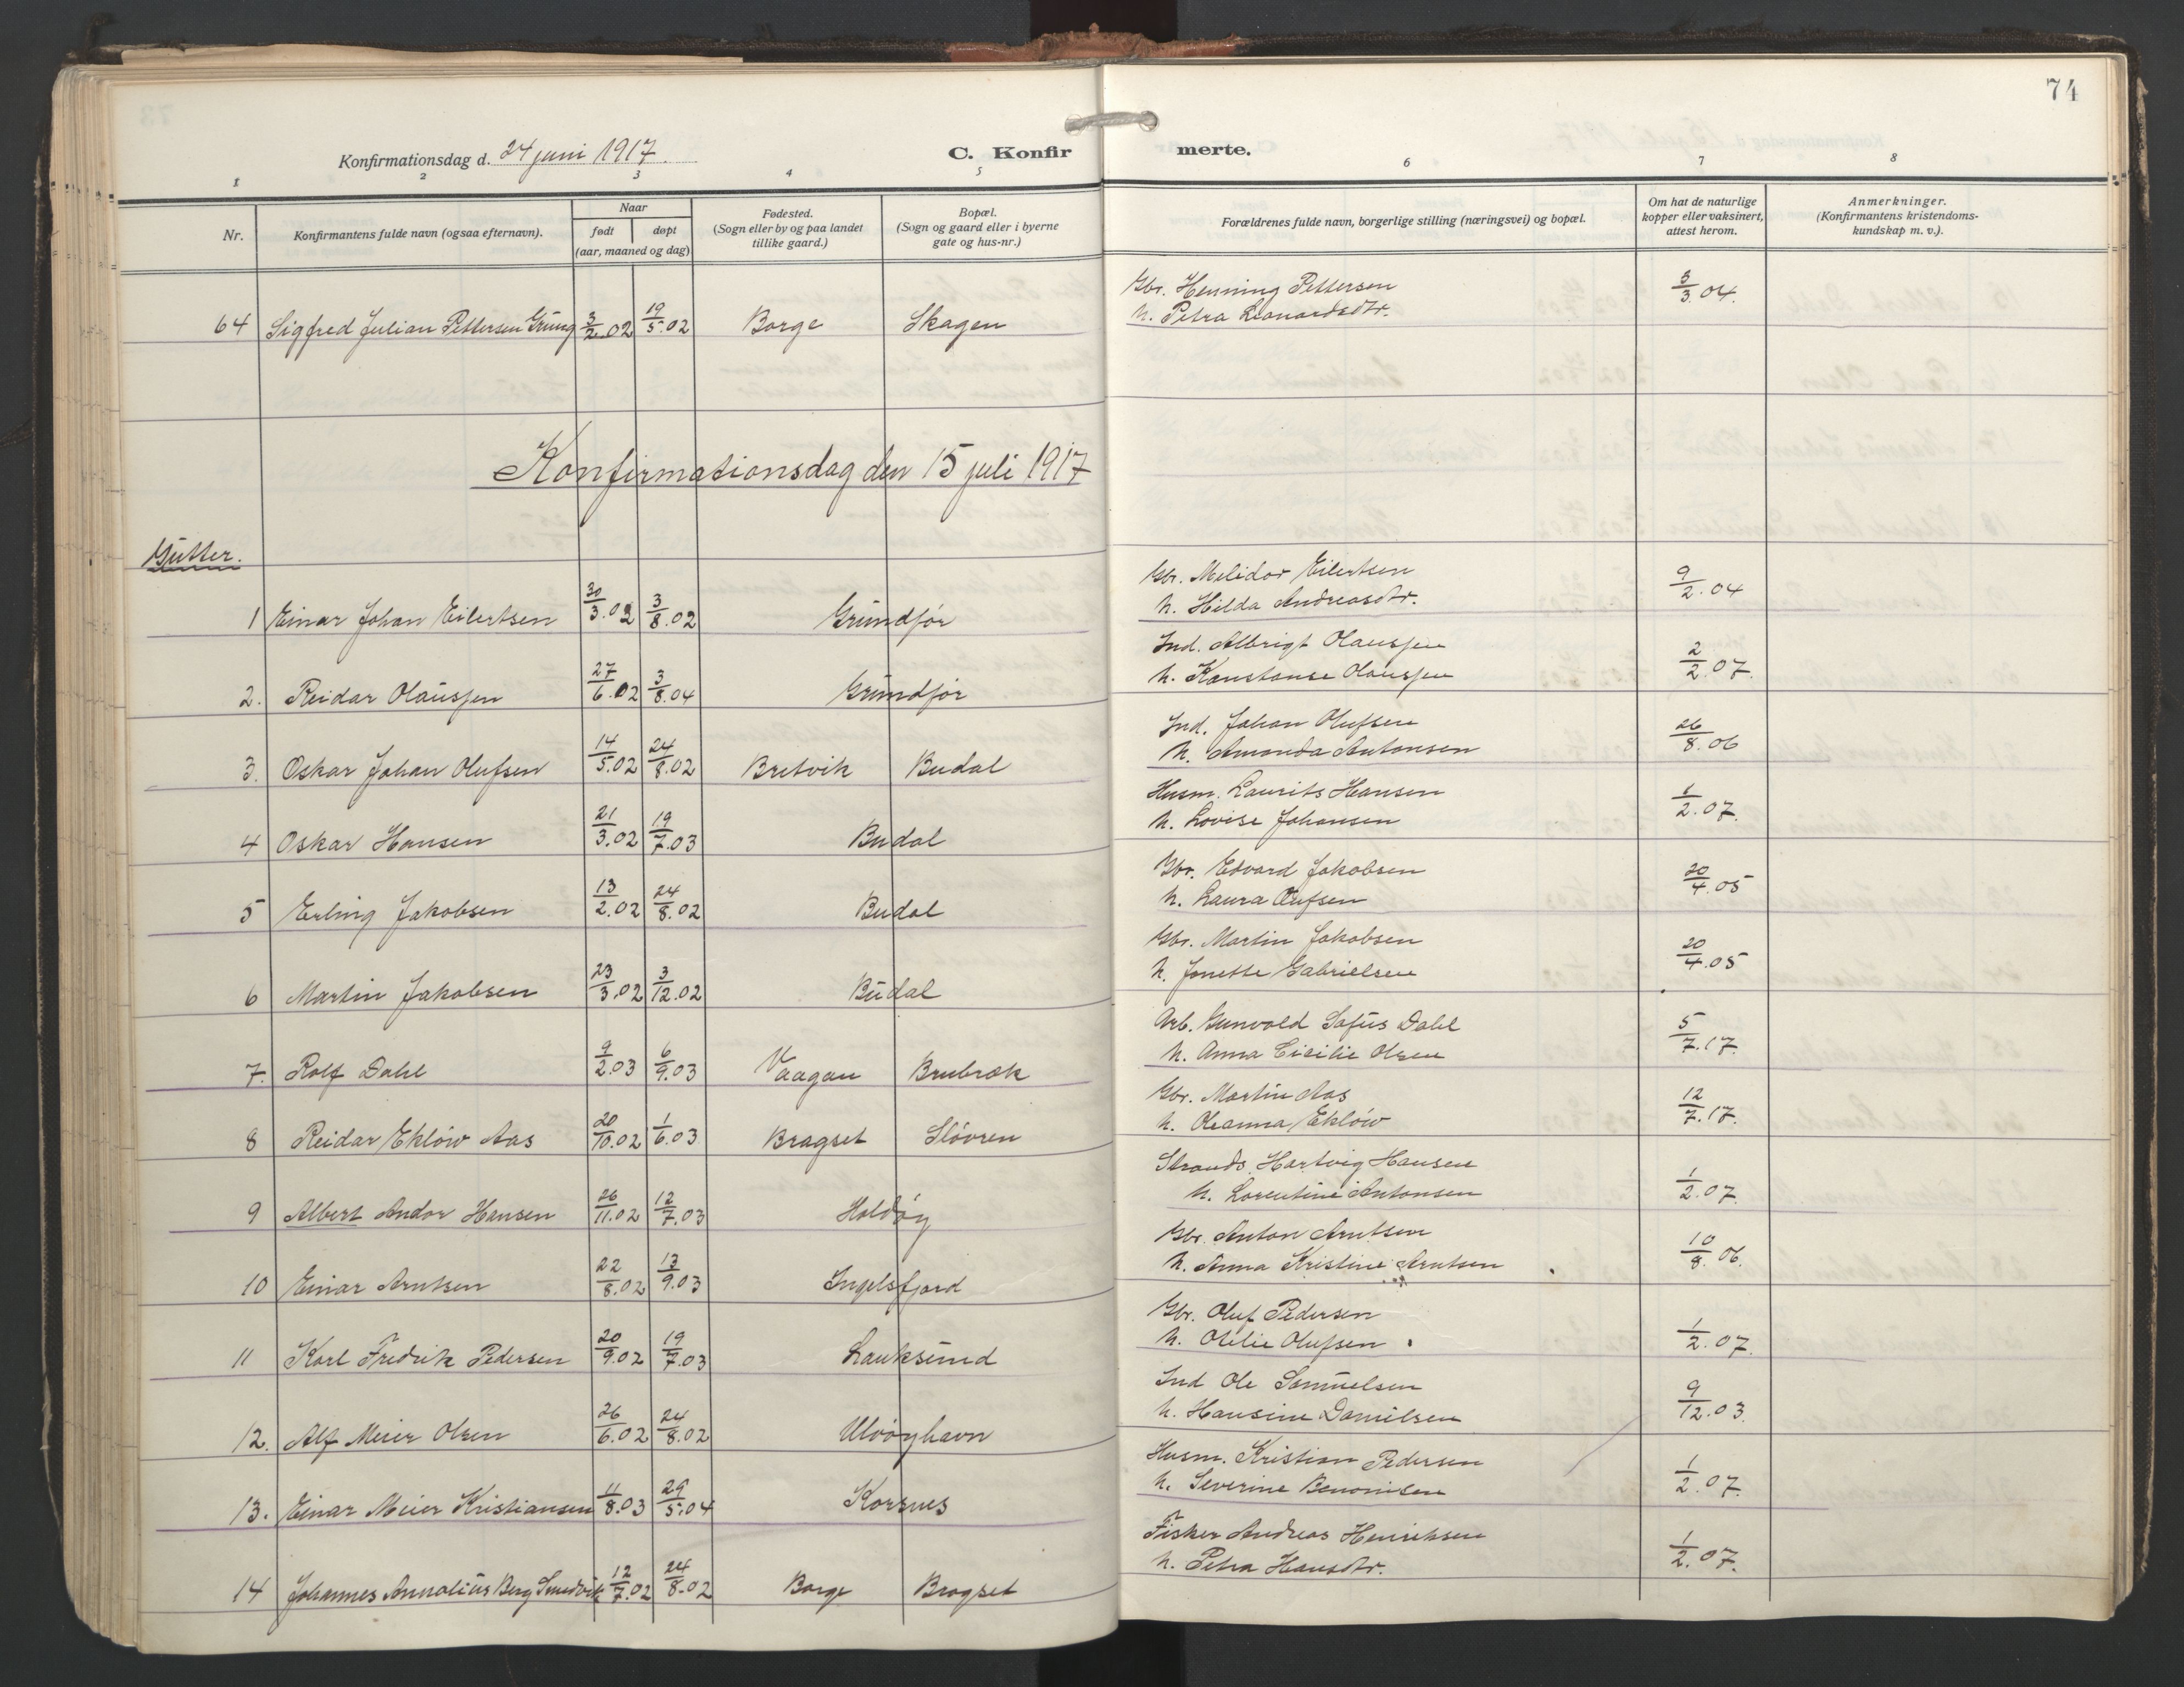 74
Konfirmationsdag d. 24 juni 1917.
C. Konfirmerte.
1 2 3 4 5 6 7 8
Nr.
Konfirmantens fulde navn (ogsaa efternavn).
Naar
født døpt
(aar, maaned og dag)
Fødested.
(Sogn eller by og paa landet
tillike gaard.)
Bopæl.
(Sogn og gaard eller i byerne
gate og hus-nr.)
Forældrenes fulde navn, borgerlige stilling (næringsvei) og bopæl.
Om hat de naturlige
kopper eller vaksinert,
attest herom.
Anmerkninger.
(Konfirmantens kristendoms-
kundskap m. v.).
64 Sigfred Julian Pettersen Grung 3/2.02 19/5.02 Borge Skagen Gbr. Henning Pettersen 3/3.04.
h. Petra Leonardsdtr.
Konfirmationsdag den 15 juli 1917
Gutter.
1 Einar Johan Eilertsen 30/3.02 3/8.02 Grundför Gbr. Melidor Eilertsen 9/2.04
h. Hilda Andreasdtr.
2. Reidar Olaussen 27/6.02 3/8.04 Grundför Ind. Albrigt Olaussen 2/2.07.
h. Konstanse Olaussen
3. Oskar Johan Olufsen 14/5.02 24/8.02 Bretvik Budal Ind. Johan Olufsen 26/8.06
h. Amanda Antonsen
4 Oskar Hansen 21/3.02 19/7.03 Budal Husm. Laurits Hansen 1/2.07.
h. Lovise Johansen
5 Erling Jakobsen 13/2.02 24/8.02 Budal Gbr. Edvard Jakobsen 20/4.05
h. Laura Olufsen
6 Martin Jakobsen 23/3.02 3/12.02 Budal Gbr. Martin Jakobsen 20/4.05
h. Jonette Gabrielsen
7. Rolf Dahl 9/2.03 6/9.03 Vaagan Brubrok Arb. Gunvald Sofus Dahl 5/7.17.
h. Anna Cicilie Olsen
8 Reidar Eklöw Aas 20/10.02 1/6.03 Bragset Slövren Gbr. Martin Aas 12/7.17.
h. Oleanna Eklöw
9 Albert Andor Hansen 26/11.02 12/7.03 Holdöy Strands. Hartvig Hansen 1/2.07.
h. Lorentine Antonsen
10 Einar Arntsen 22/8.02 13/9.03 Ingelsfjord Gbr. Anton Arntsen 10/8.06.
h. Anna Kristine Arntsen
11 Karl Fredrik Pedersen 20/9.02 19/7.03 Lauksund Gbr. Oluf Pedersen 1/2.07.
h. Otelie Olufsen
12. Alf Meier Olsen 26/6.02 24/8.02 Ulvöyhavn Ind Ole Samuelsen 9/12.03.
h. Hansine Danielsen
13. Einar Meier Kristiansen 11/8.03 29/5.04 Korsnes Husm. Kristian Pedersen 1/2.07.
h. Severine Benonisen
14 Johannes Annalius Berg Smedvik 12/7.02 24/8.02 Borge Brogset Fisker Andreas Henriksen 1/2.07.
h. Petra Hansdtr.